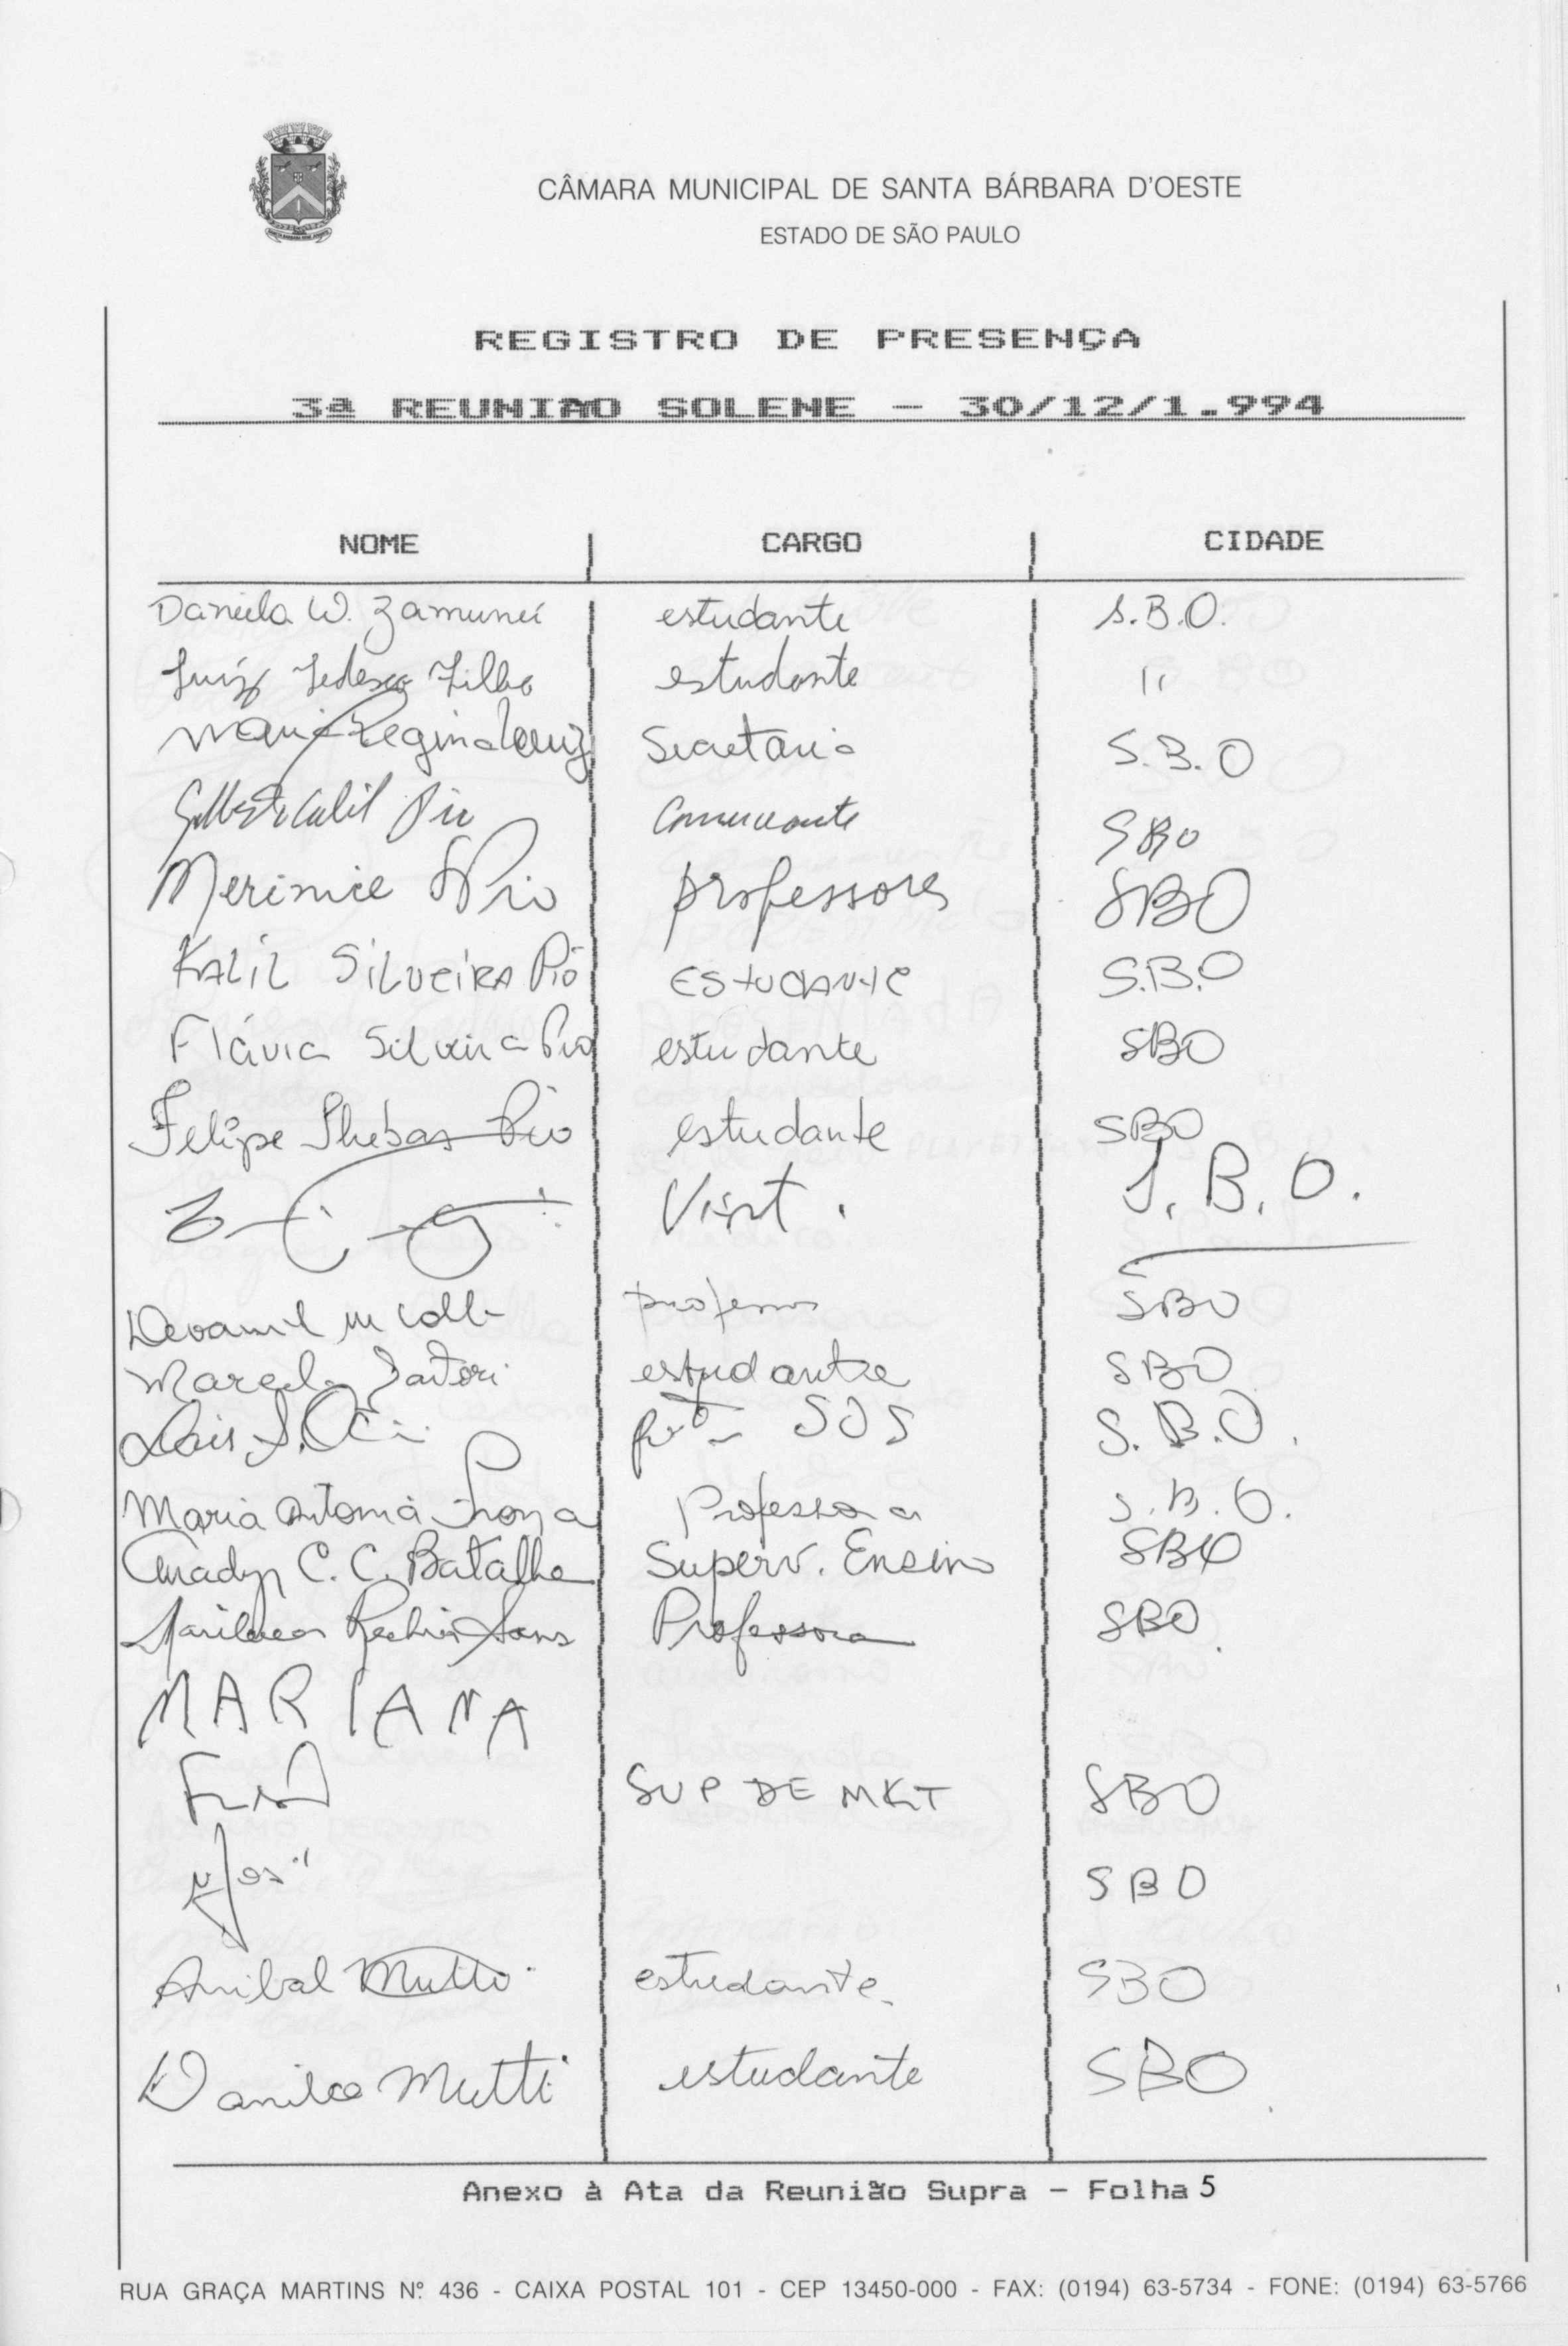 CÂMARA MUNICIPAL DE SANTA BÁRBARA D'OESTE
ESTADO DE SÃO PAULO
REGISTRO DE PRESENÇA
3ª REUNIÃO SOLENE - 30/12/1.994
NOME CARGO CIDADE
Daniela W. estudante S.B.O.
Luiz Tedesco Filho estudante "
Maria Regina Secretaria S.B.O
Pio SBO
Merinice Pio professores SBO
KALIL SILVEIRA Pio ESTUDANTE S.B.O
Flávia Silveira Pio estudante SBO
Felipe Pio estudante SBO
Visit. S.B.O.
professor SBO
Marcela Sartori estudante SBO
SOS S.B.O.
Maria Antonia Professora S.B.O.
C. C. Batalha Superv. Ensino SBO
Professora SBO
MARIANA
SUP DE MKT SBO
SBO
Anibal Mutti estudante SBO
Danilo Mutti estudante SBO
Anexo à Ata da Reunião Supra - Folha 5
RUA GRAÇA MARTINS Nº 436 - CAIXA POSTAL 101 - CEP 13450-000 - FAX: (0194) 63-5734 - FONE: (0194) 63-5766